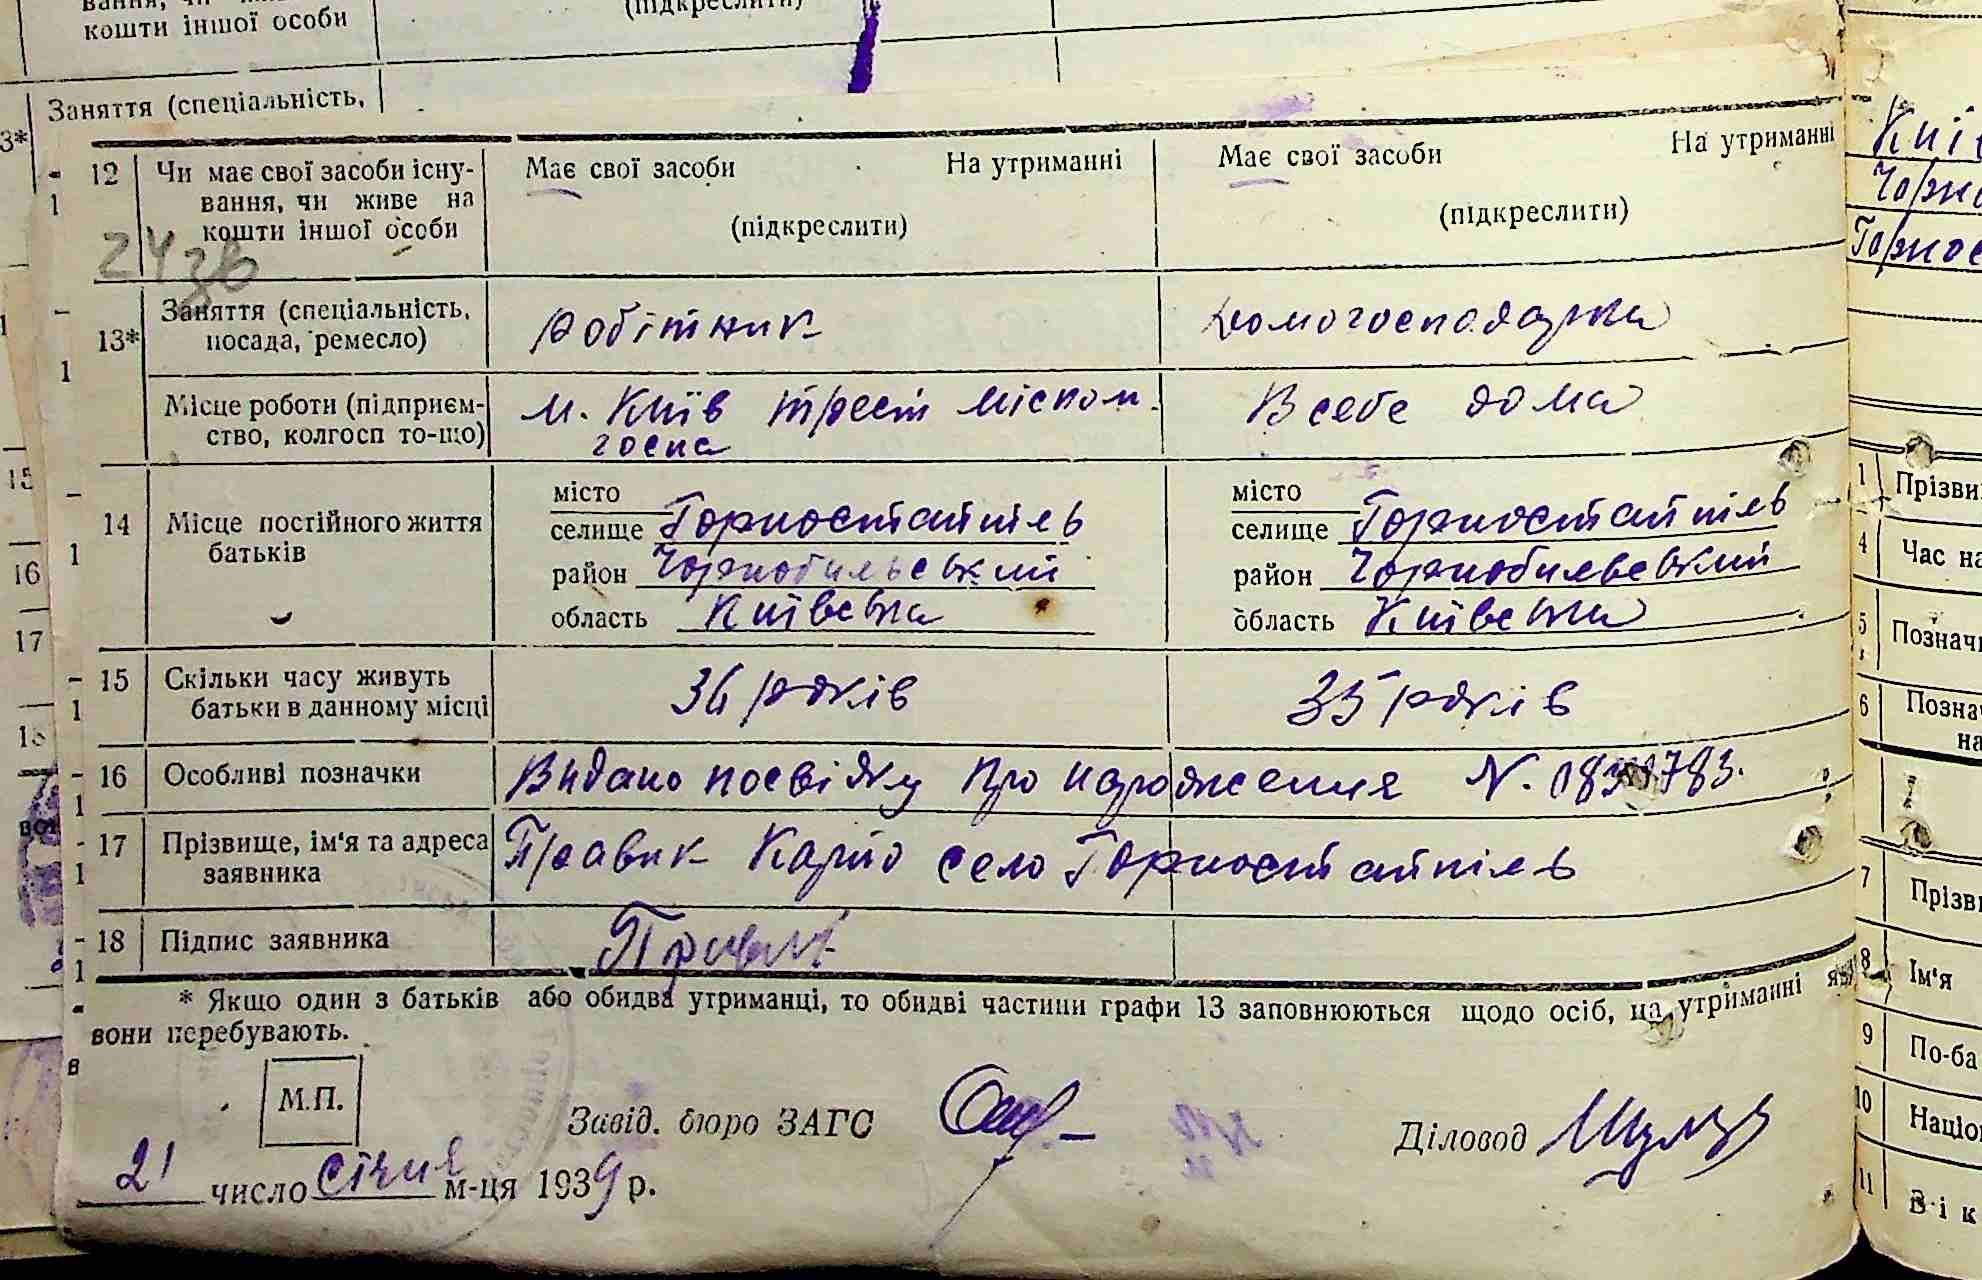 кошти іншої особи
(підкреслити)
Заняття (спеціальність,
12 Чи має свої засоби існу- Має свої засоби На утриманні Має свої засоби На утриманні
вання, чи живе на (підкреслити) (підкреслити)
кошти іншої особи
24зв
13* Заняття (спеціальність, робітник домогосподарка
посада, ремесло)
Місце роботи (підприєм- м. Київ трест міском. В себе дома
ство, колгосп то-що) госпа
місто місто
14 Місце постійного життя селище Горностайпіль селище Горностайпіль
батьків район Чорнобильський район Чорнобильський
область Київська область Київська
15 Скільки часу живуть 36 років 35 років
батьки в данному місці
16 Особливі позначки Видано посвідку про народження N.
17 Прізвище, ім'я та адреса Правик Карпо село Горностайпіль
заявника
18 Підпис заявника
* Якщо один з батьків або обидва утриманці, то обидві частини графи 13 заповнюються щодо осіб, на утриманні яких
вони перебувають.
М.П.
Завід. бюро ЗАГС Діловод
21 число січня м-ця 1939 р.
15
16
17
1 Прізви
4 Час на
5 Познач
6 Позна
на
7 Прізв
8 Ім'я
9 По-ба
10 Націо
11 Вік